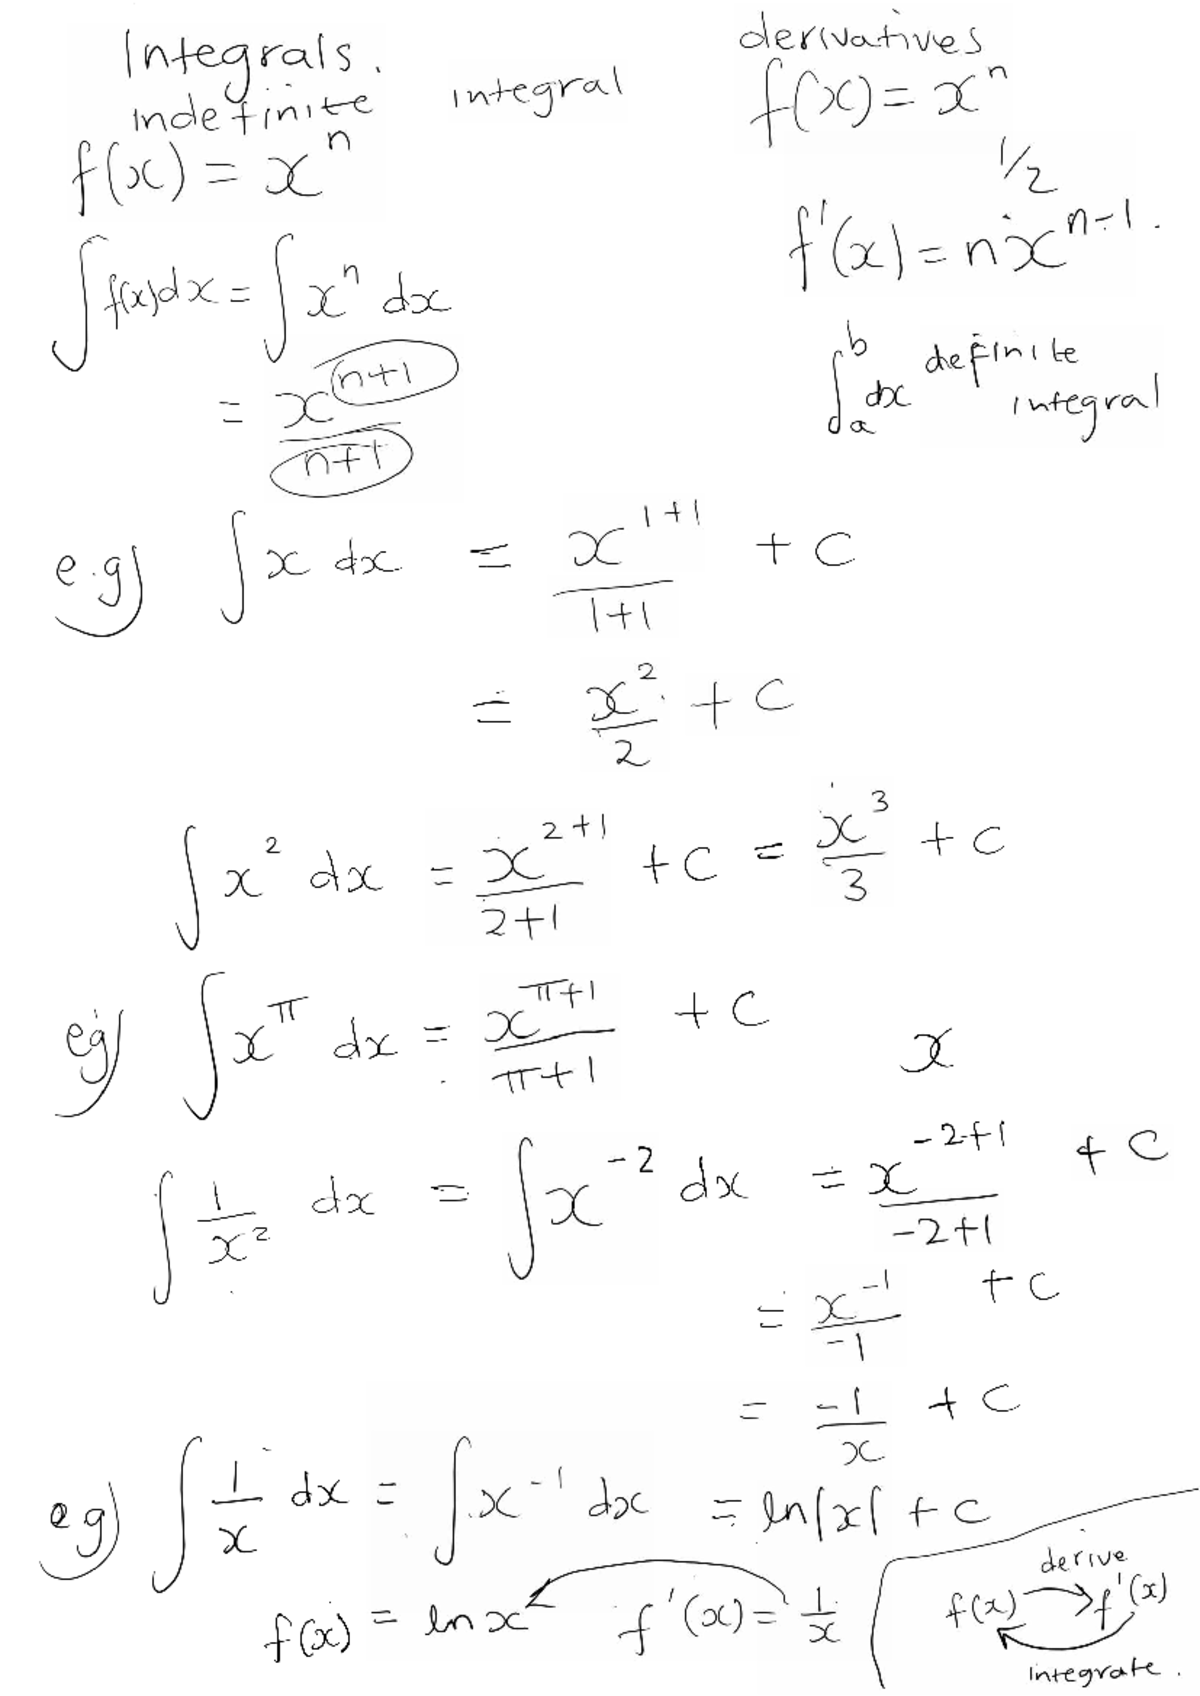 Integrals.
indefinite integral
f(x) = xⁿ
∫ f(x)dx = ∫ xⁿ dx
= x^(n+1) / (n+1)
derivatives
f(x) = xⁿ
1/2
f'(x) = nx^(n-1).
∫_a^b dx definite
integral
e.g) ∫ x dx = x^(1+1) / (1+1) + C
= x² / 2 + C
∫ x² dx = x^(2+1) / (2+1) + C = x³ / 3 + C
eg) ∫ x^π dx = x^(π+1) / (π+1) + C
x
∫ 1/x² dx = ∫ x^(-2) dx = x^(-2+1) / (-2+1) + C
= x^(-1) / -1 + C
= -1 / x + C
eg) ∫ 1/x dx = ∫ x^(-1) dx = ln|x| + C
f(x) = ln x f'(x) = 1/x
derive
f(x) f'(x)
integrate.